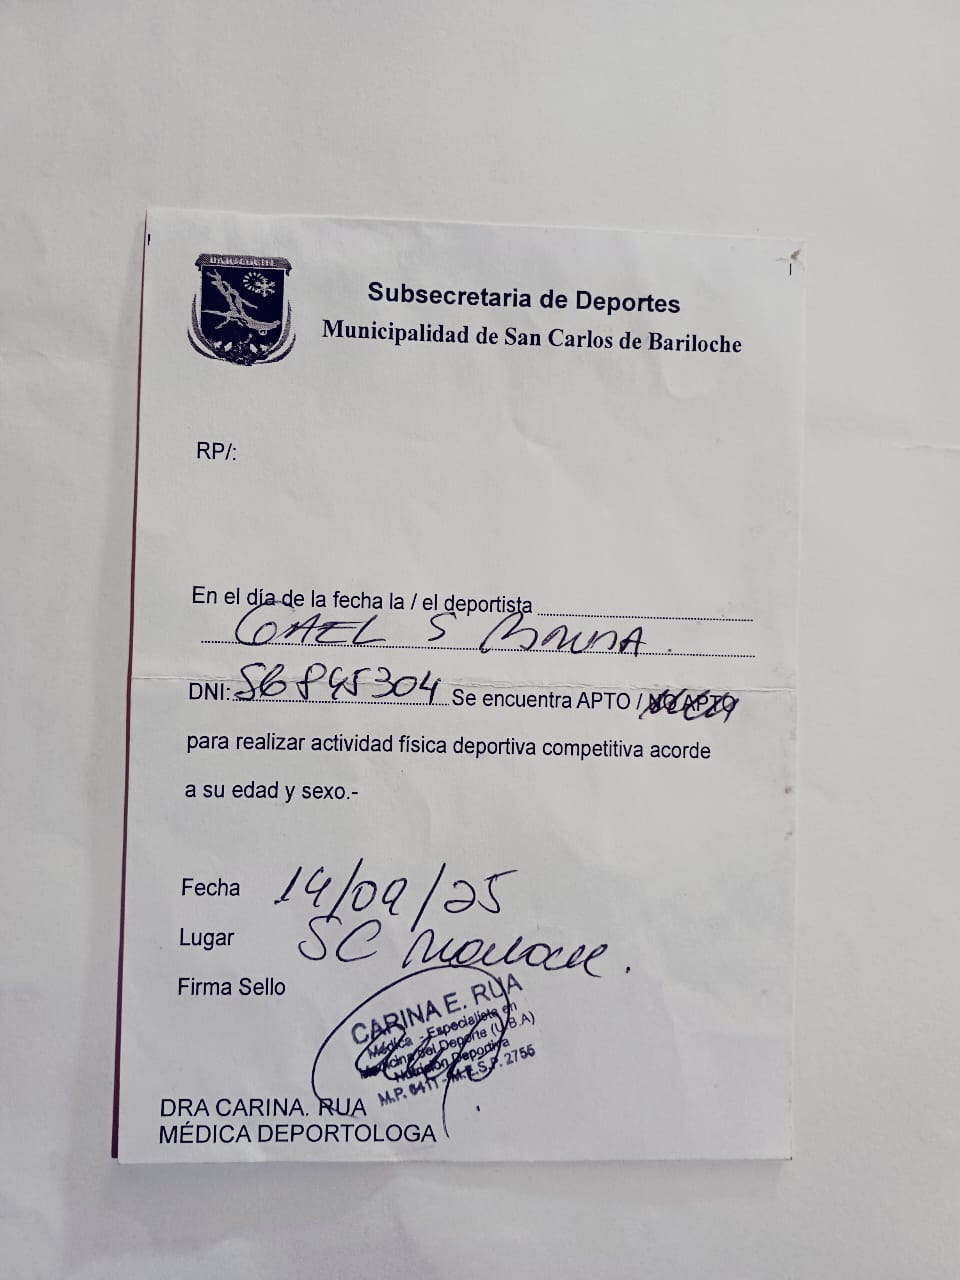 BARILOCHE
Subsecretaria de Deportes
Municipalidad de San Carlos de Bariloche
RP/:
En el día de la fecha la / el deportista
GAEL S
DNI: 56845304 Se encuentra APTO / NO APTO
para realizar actividad física deportiva competitiva acorde
a su edad y sexo.-
Fecha 14/09/25
Lugar SC Bariloche.
Firma Sello
CARINA E. RUA
Médica - Especialista en
Medicina del Deporte (U.B.A)
Nutrición Deportiva
M.P. - M.E.S.P. 2755
DRA CARINA. RUA
MÉDICA DEPORTOLOGA